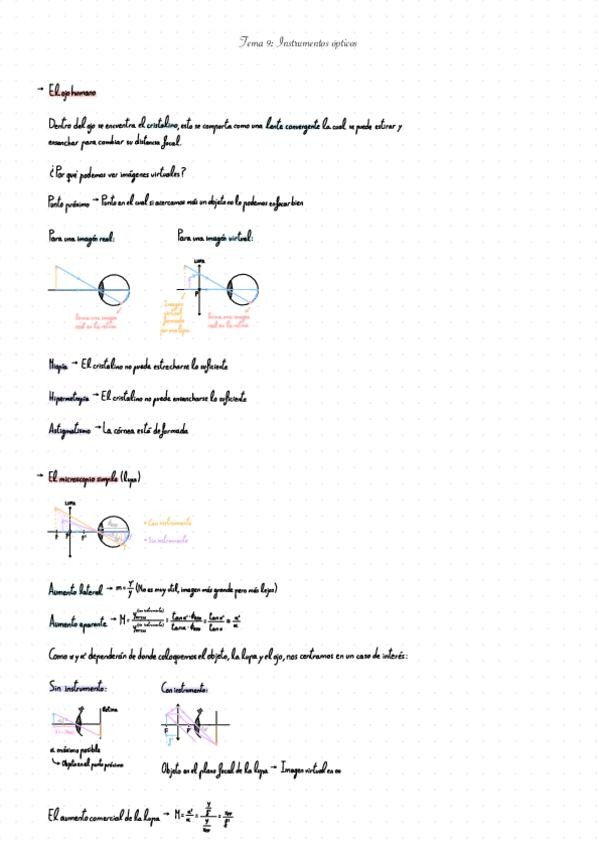 Tema 9: Instrumentos ópticos
→ El ojo humano
Dentro del ojo se encuentra el cristalino, esto se comporta como una lente convergente la cual se puede estirar y
ensanchar para cambiar su distancia focal.
¿Por qué podemos ver imágenes virtuales?
Punto próximo → Punto en el cual si acercamos más un objeto no lo podemos enfocar bien
Para una imagen real:
Para una imagen virtual:
Lupa
F
Imagen virtual formada por una lupa
forma una imagen real en la retina
forma una imagen real en la retina
Miopía → El cristalino no puede estrecharse lo suficiente
Hipermetropía → El cristalino no puede ensancharse lo suficiente
Astigmatismo → La córnea está deformada
→ El microscopio simple (lupa)
Lupa
• Con instrumento
• Sin instrumento
Aumento lateral → m = y'/y (No es muy útil, imagen más grande pero más lejos)
Aumento aparente → M =
Como α y α' dependerán de donde coloquemos el objeto, la lupa y el ojo, nos centramos en un caso de interés:
Sin instrumento:
Con instrumento:
Retina
F
α máximo posible
↳ Objeto en el punto próximo
Objeto en el plano focal de la lupa → Imagen virtual en ∞
El aumento comercial de la lupa → M = α'/α =